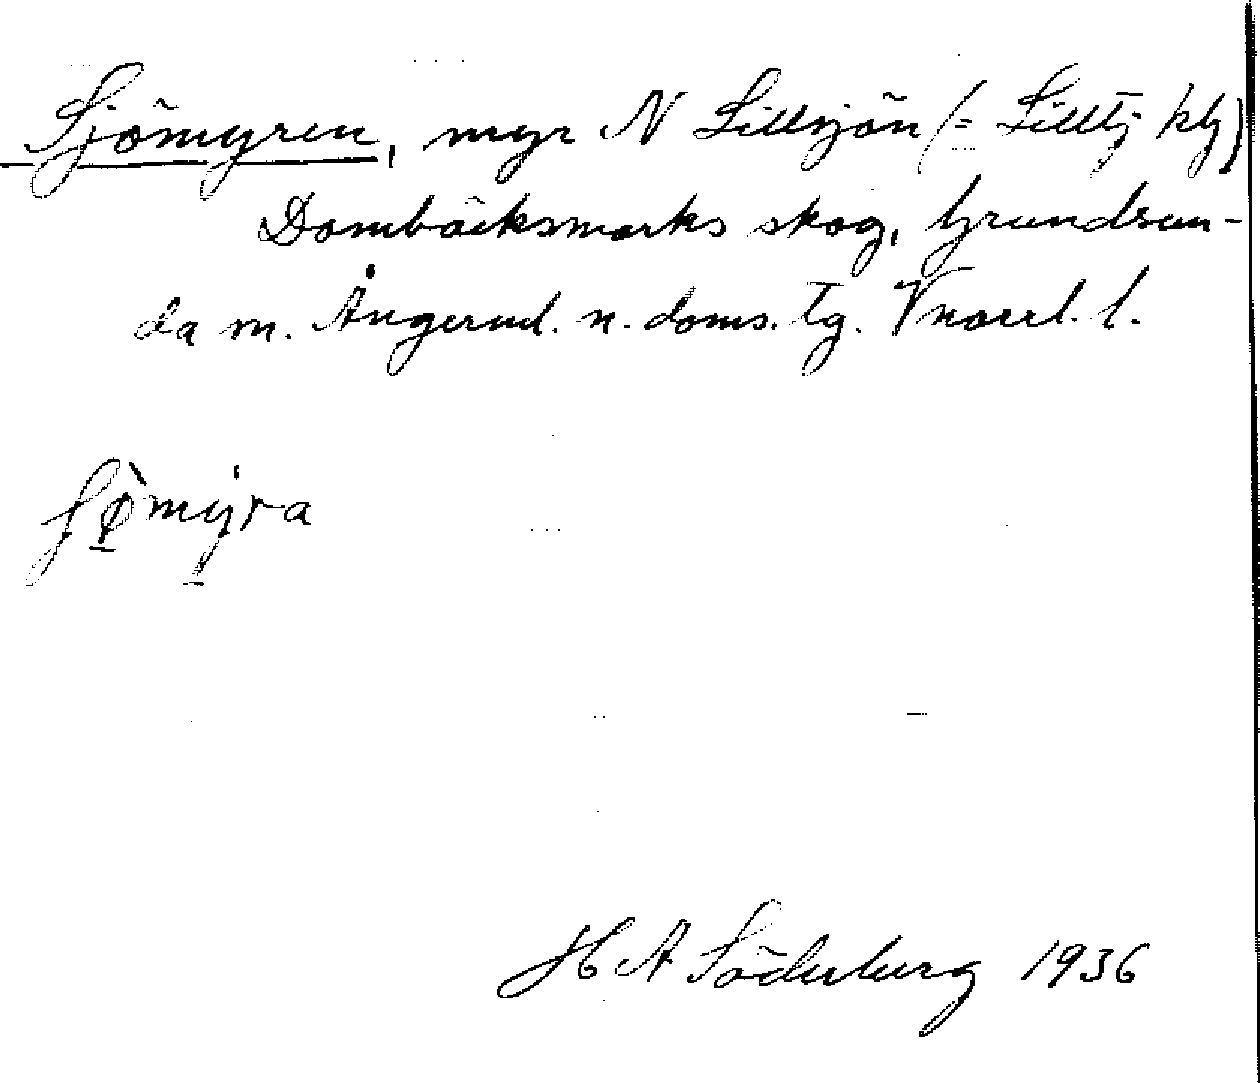 Sjömyren, myr N Lillsjön (= Lilltj klg)
Dombäcksmarks skog, Grundsun-
da m. Ångerml. n. doms. Tg. Vnorrl. l.
ʃömyra
H A Söderberg 1936